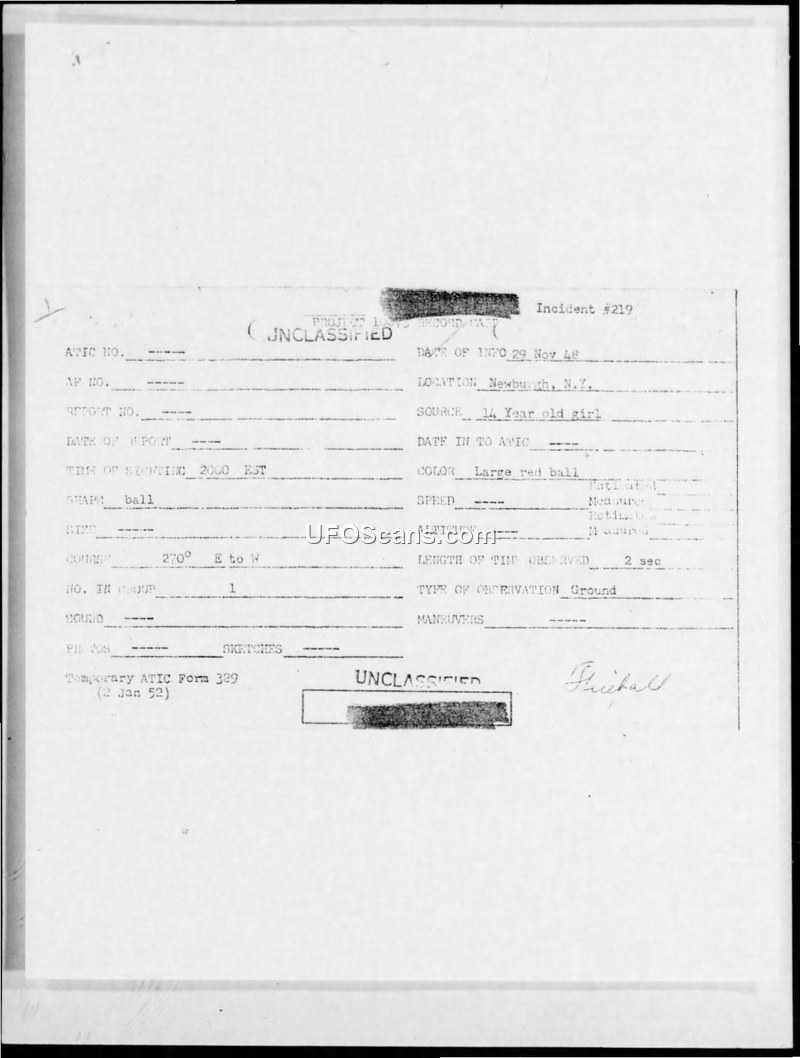 Incident #219
PROJECT 10073 RECORD CARD
UNCLASSIFIED
ATIC NO. -----
DATE OF INFO 29 Nov 48
AF NO. -----
LOCATION Newburgh, N.Y.
REPORT NO. ----
SOURCE 14 Year old girl
DATE OF REPORT ----
DATE IN TO ATIC ----
TIME OF SIGHTING 2000 EST
COLOR Large red ball
SHAPE ball
SPEED ---- Estimated
Measured
SIZE -----
ALTITUDE ---- Estimated
Measured
UFOScans.com
COURSE 270° E to W
LENGTH OF TIME OBSERVED 2 sec
NO. IN GROUP 1
TYPE OF OBSERVATION Ground
SOUND ----
MANEUVERS -----
PHOTOS ----- SKETCHES -----
Temporary ATIC Form 329
(2 Jan 52)
UNCLASSIFIED
Fireball